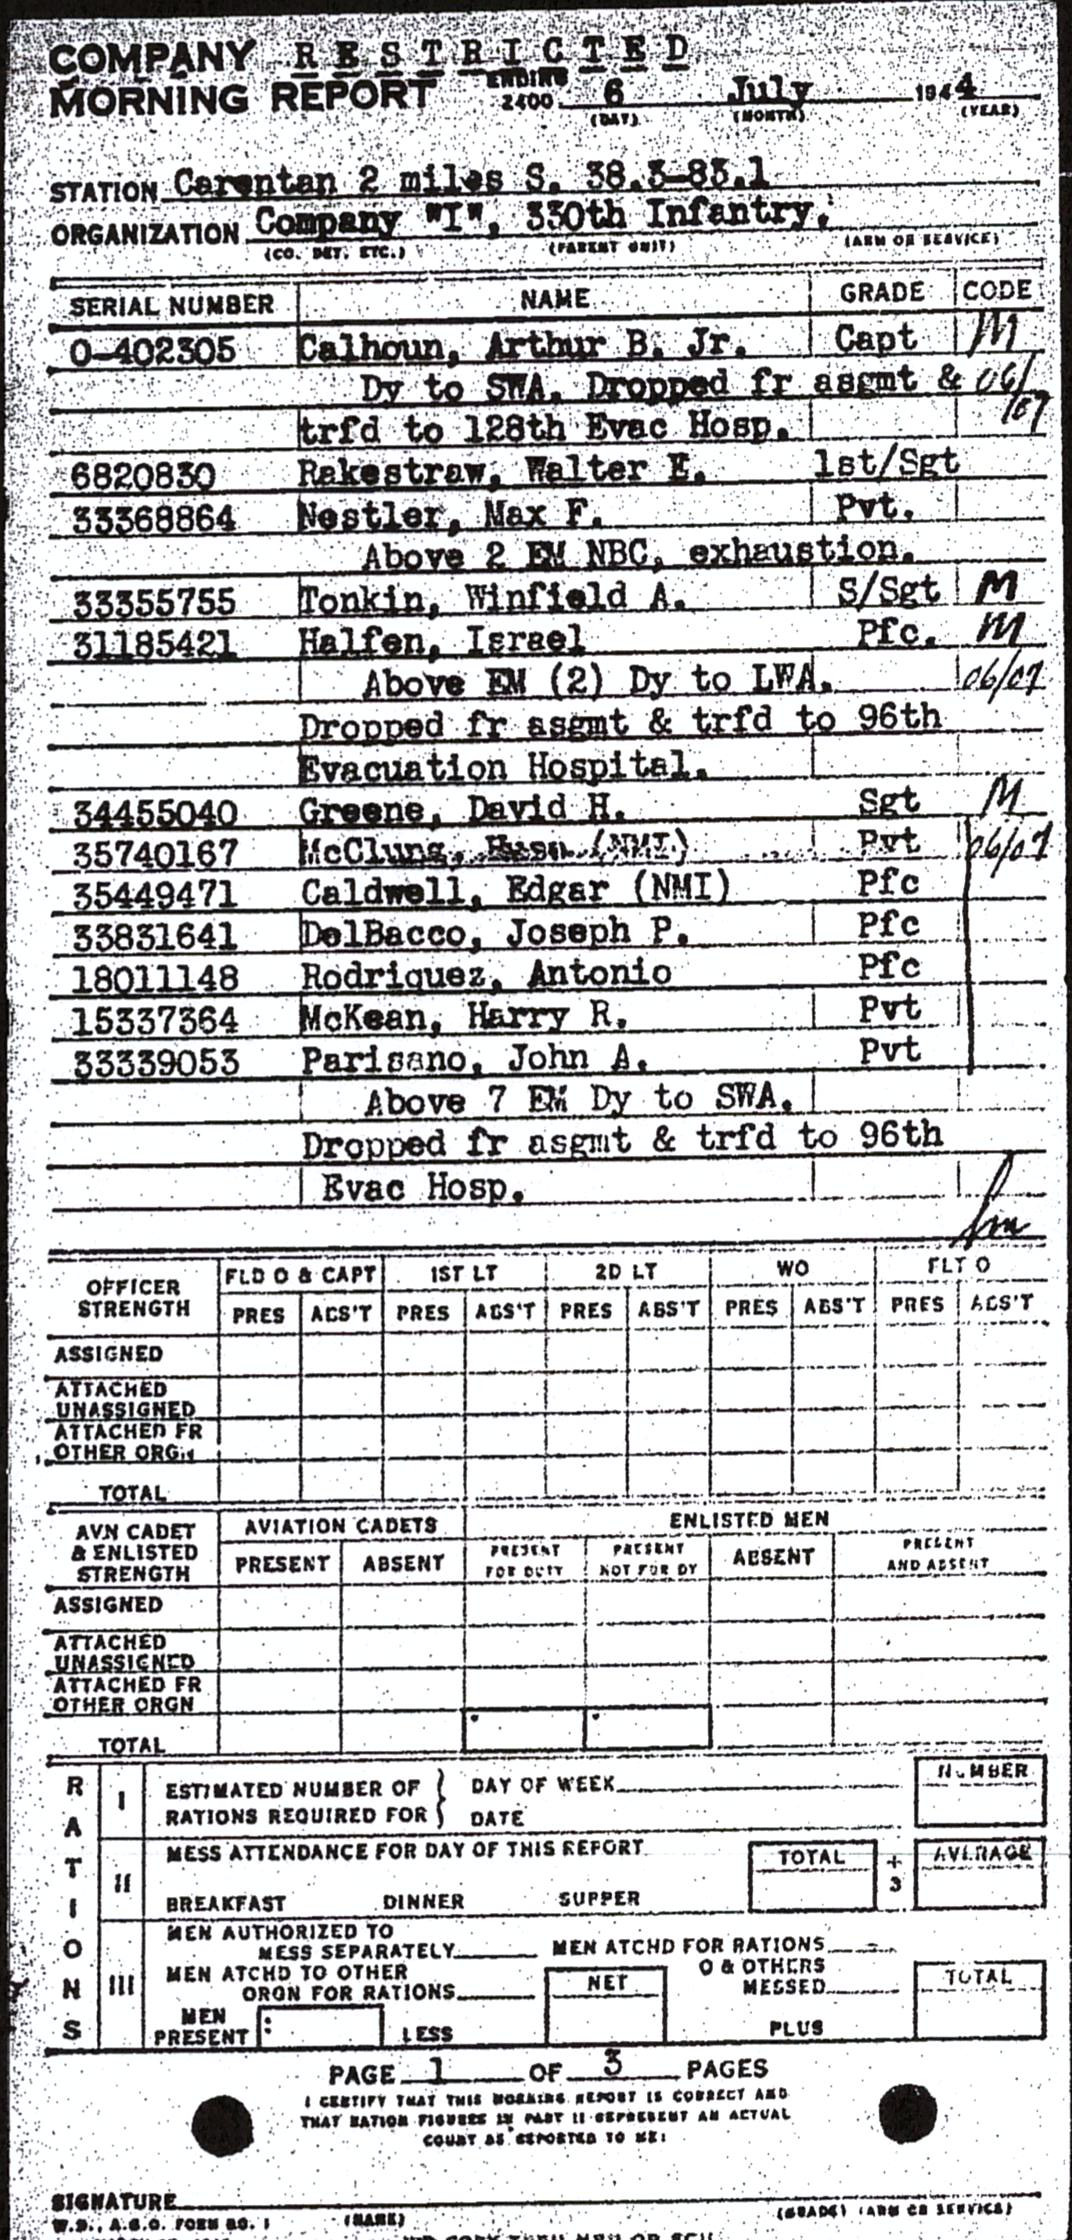 COMPANY R E S T R I C T E D
MORNING REPORT ENDING 2400 6 July 1944
(DAY) (MONTH) (YEAR)
STATION Carentan 2 miles S. 38.3-83.1
ORGANIZATION Company "I", 330th Infantry.
(CO. DET. ETC.) (PARENT UNIT) (ARM OR SERVICE)
SERIAL NUMBER NAME GRADE CODE
O-402305 Calhoun, Arthur B. Jr. Capt M
Dy to SWA. Dropped fr asgmt & 06/07
trfd to 128th Evac Hosp.
6820830 Rakestraw, Walter E. 1st/Sgt
33368864 Nestler, Max F. Pvt.
Above 2 EM NBC, exhaustion.
33355755 Tonkin, Winfield A. S/Sgt M
31185421 Halfen, Israel Pfc. M
Above EM (2) Dy to LWA. 06/07
Dropped fr asgmt & trfd to 96th
Evacuation Hospital.
34455040 Greene, David H. Sgt M
35740167 McClung, (NMI) Pvt 06/07
35449471 Caldwell, Edgar (NMI) Pfc
33831641 DelBacco, Joseph P. Pfc
18011148 Rodriquez, Antonio Pfc
15337364 McKean, Harry R. Pvt
33339053 Parisano, John A. Pvt
Above 7 EM Dy to SWA.
Dropped fr asgmt & trfd to 96th
Evac Hosp.
OFFICER STRENGTH FLD O & CAPT 1ST LT 2D LT WO FLT O
PRES ABS'T PRES ABS'T PRES ABS'T PRES ABS'T PRES ABS'T
ASSIGNED
ATTACHED UNASSIGNED
ATTACHED FR OTHER ORGN
TOTAL
AVN CADET & ENLISTED STRENGTH AVIATION CADETS ENLISTED MEN
PRESENT ABSENT PRESENT FOR DUTY PRESENT NOT FOR DY ABSENT PRESENT AND ABSENT
ASSIGNED
ATTACHED UNASSIGNED
ATTACHED FR OTHER ORGN
TOTAL
RATIONS
I ESTIMATED NUMBER OF RATIONS REQUIRED FOR DAY OF WEEK DATE NUMBER
II MESS ATTENDANCE FOR DAY OF THIS REPORT TOTAL ÷ 3 AVERAGE
BREAKFAST DINNER SUPPER
III MEN AUTHORIZED TO MESS SEPARATELY MEN ATCHD FOR RATIONS
MEN ATCHD TO OTHER ORGN FOR RATIONS NET O & OTHERS MESSED TOTAL
MEN PRESENT LESS PLUS
PAGE 1 OF 3 PAGES
I CERTIFY THAT THIS MORNING REPORT IS CORRECT AND
THAT RATION FIGURES IN PART II REPRESENT AN ACTUAL
COUNT AS REPORTED TO ME:
SIGNATURE
W.D., A.G.O. FORM NO. 1 (NAME) (GRADE) (ARM OR SERVICE)